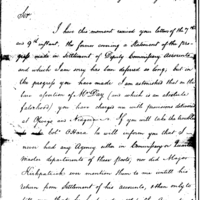 Sir,
I have this moment received your letters of the 7th
and 9th instant, the former covering a Statement of the pro-
gress made in Settlement of Deputy Commissary Accounts
and which I am sorry has been deferred so long, but in
the progress you have made I am astonished that on the
assertion of Mr Day (and which is an absolute
falsehood) you have charged me with provisions delivered
at Otsego and Niagara. If you will take the trouble
Col. O'Hara he will inform you that I
never had any Agency either in Commissary or Quarter
Master departments of those posts, nor did Major
Kirkpatrick ever mention them to me until his
return from Settlement of his accounts, then only to